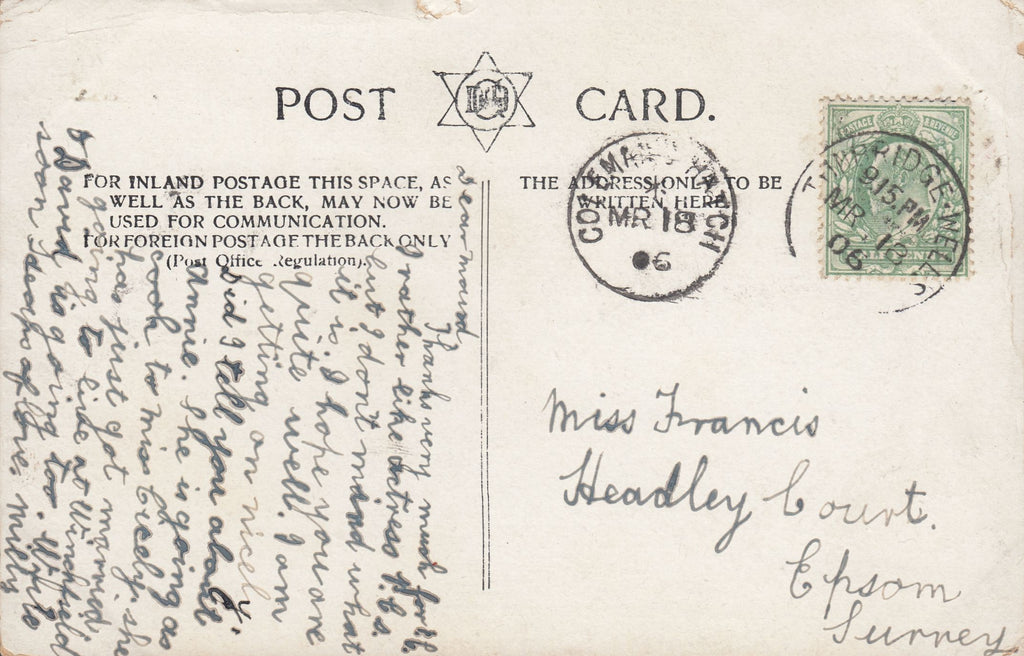 POST CARD.
FOR INLAND POSTAGE THIS SPACE, AS
WELL AS THE BACK, MAY NOW BE
USED FOR COMMUNICATION.
FOR FOREIGN POSTAGE THE BACK ONLY
(Post Office Regulation).
THE ADDRESS ONLY TO BE
WRITTEN HERE
COLEMAN'S HATCH
MR 18
06
POSTAGE & REVENUE
TUNBRIDGE-WELLS
9.15 PM
MR 18
06
Dear Maud,
Thanks very much for P.C.
I rather like actress P.Cs.
but I don't mind what
it is. I hope you are
quite well. I am
getting on nicely.
Did I tell you about
Annie. She is going as
cook to Miss Cicely. She
has just got married.
going to live at Winchfield
& David is going too. Write
soon. Heaps of love, Milly
Miss Francis
Headley Court.
Epsom
Surrey